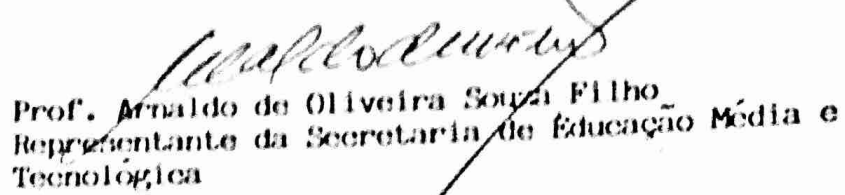 Prof. Arnaldo de Oliveira Souza Filho
Representante da Secretaria de Educação Média e
Tecnológica